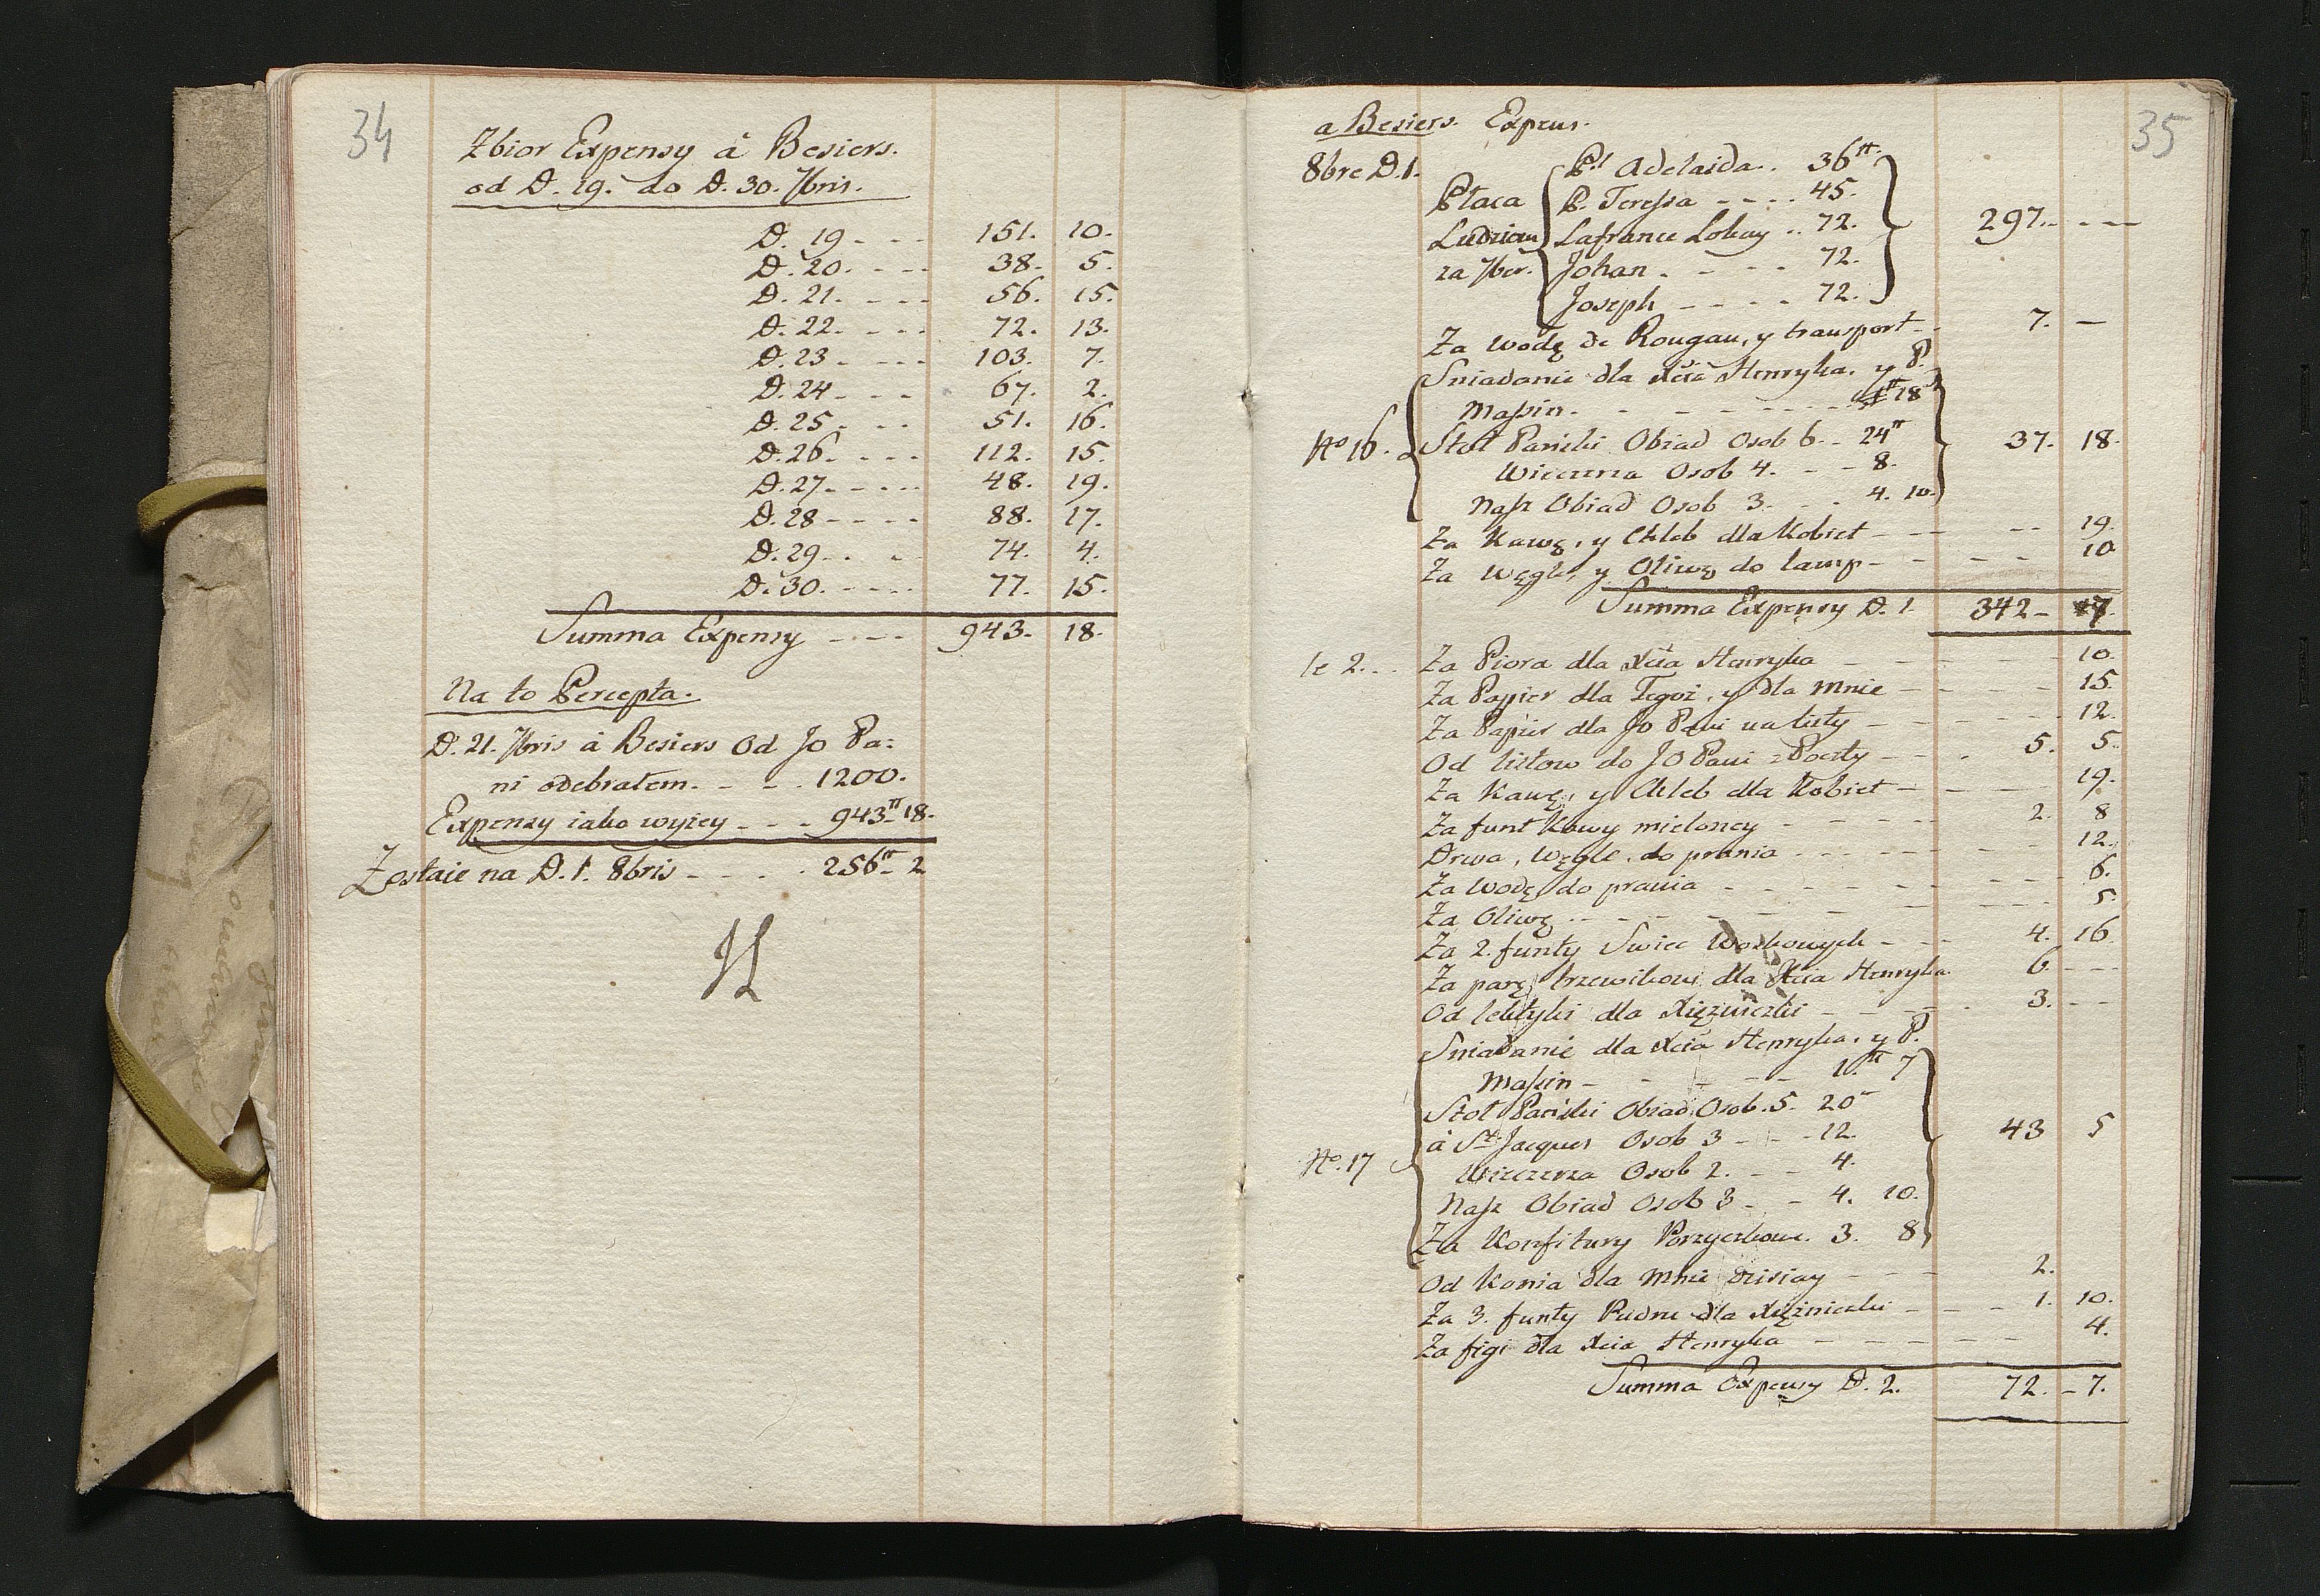 34
Zbior Expensy à Besiers.
od D. 19. do D. 30. 7bris.
D. 19 - - - 151. 10.
D. 20. - - - 38. 5.
D. 21. - - - 56. 15.
D. 22. - - - 72. 13.
D. 23 - - - - 103. 7.
D. 24 - - - 67. 2.
D. 25 - - - 51. 16.
D. 26. - - - 112. 15.
D. 27. - - - - 48. 19.
D. 28 - - - - 88. 17.
D. 29 - - - 74. 4.
D. 30. - - - - 77. 15.
Summa Expensy - - - - 943. 18.
Na to Percepta.
D. 21. 7bris à Besiers Od Jo Pa:
ni odebrałem. - - . 1200.
Expensy iako wyżey - - - 943tt 18.
Zostaie na D. 1. 8bris - - - . 256tt 2
35
a Besiers. Expens.
8bre D. 1.
Płaca Ludziom za 7ber.
Pł Adelaida . . 36tt
P. Teressa - - - - 45.
Lafrance Lokay . . 72.
Johan . - - - - 72.
Joseph - - - - 72.
297. - - -
Za wodę de Rougau, y transport - - 7. —
No 16.
Sniadanie dla Xcia Henryka, y P.
Massin. - - - - - - 1tt 18
Stoł Pański Obiad Osob 6. - 24tt
Wieczerza Osob 4. - - 8.
Nasz Obiad Osob 3. - - 4. 10.
37. 18.
Za Kawę, y Chleb dla Kobiet - - - - - 19.
Za Węgle, y Oliwę do lamp - - - - - 10
Summa Expensy D. 1. 342 - 17.
le 2. . . Za Piora dla Xcia Henryka - - - - - 10.
Za Papier dla Tegoż, y dla Mnie - - - - - 15.
Za Papier dla Jo Pani na listy - - - - - 12.
Od listow do JO Pani z Poczty - - . 5. 5.
Za Kawę, y Chleb dla Kobiet - - - - - 19.
Za funt Kawy mieloney - - - - - 2. 8
Drwa, Węgle, do prania - - - - - 12.
Za Wodę do prania - - - - - 6.
Za Oliwę - - - - - 5.
Za 2. funty Swiec Woskowych - - - 4. 16
Za parę trzewikow dla Xcia Henryka 6. - - -
Od lektyki dla Xiężniczki - - - - . 3. - -
No. 17
Sniadanie dla Xcia Henryka, y P.
Massin - - - - - 1.tt 7
Stoł Pański Obiad Osob. 5. 20 -
à St. Jacques Osob 3 - - - 12.
Wieczerza Osob 2. - - 4.
Nasz Obiad Osob 3 - - 4. 10.
Za Konfitury Porzyczkowe. 3. 8
43 5
Od Konia dla mnie dzisiay - - - 2.
Za 3. funty Pudru dla Xiężniczki - - - 1. 10.
Za figi dla Xcia Henryka - - - - - 4.
Summa Expensy D. 2. 72. - 7.